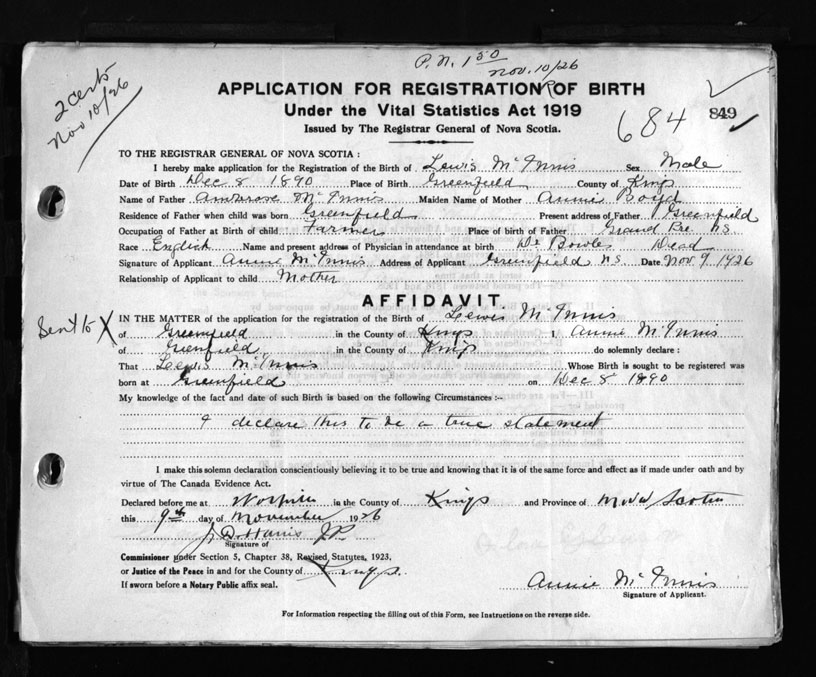 P.N. 1 50
Nov. 10/26
2 certs
Nov 10/26
APPLICATION FOR REGISTRATION OF BIRTH
Under the Vital Statistics Act 1919
684 849
Issued by The Registrar General of Nova Scotia.
TO THE REGISTRAR GENERAL OF NOVA SCOTIA :
I hereby make application for the Registration of the Birth of Lewis McInnis Sex Male
Date of Birth Dec 8 1890 Place of Birth Greenfield County of Kings
Name of Father Ambrose McInnis Maiden Name of Mother Annie Boyd
Residence of Father when child was born Greenfield Present address of Father Greenfield
Occupation of Father at Birth of child Farmer Place of birth of Father Grand Pre NS
Race English Name and present address of Physician in attendance at birth Dr Bowles Dead
Signature of Applicant Annie McInnis Address of Applicant Greenfield NS Date Nov 9 1926
Relationship of Applicant to child Mother
AFFIDAVIT.
Sent to X
IN THE MATTER of the application for the registration of the Birth of Lewis McInnis
of Greenfield in the County of Kings I, Annie McInnis
of Greenfield in the County of Kings do solemnly declare :
That Lewis McInnis Whose Birth is sought to be registered was
born at Greenfield on Dec 8 1890
My knowledge of the fact and date of such Birth is based on the following Circumstances :-
I declare this to be a true statement
I make this solemn declaration conscientiously believing it to be true and knowing that it is of the same force and effect as if made under oath and by
virtue of The Canada Evidence Act.
Declared before me at Wolfville in the County of Kings and Province of Nova Scotia
this 9th day of November 1926
Harris J.P.
Signature of
Commissioner under Section 5, Chapter 38, Revised Statutes, 1923,
or Justice of the Peace in and for the County of Kings.
If sworn before a Notary Public affix seal.
Annie McInnis
Signature of Applicant.
For Information respecting the filling out of this Form, see Instructions on the reverse side.